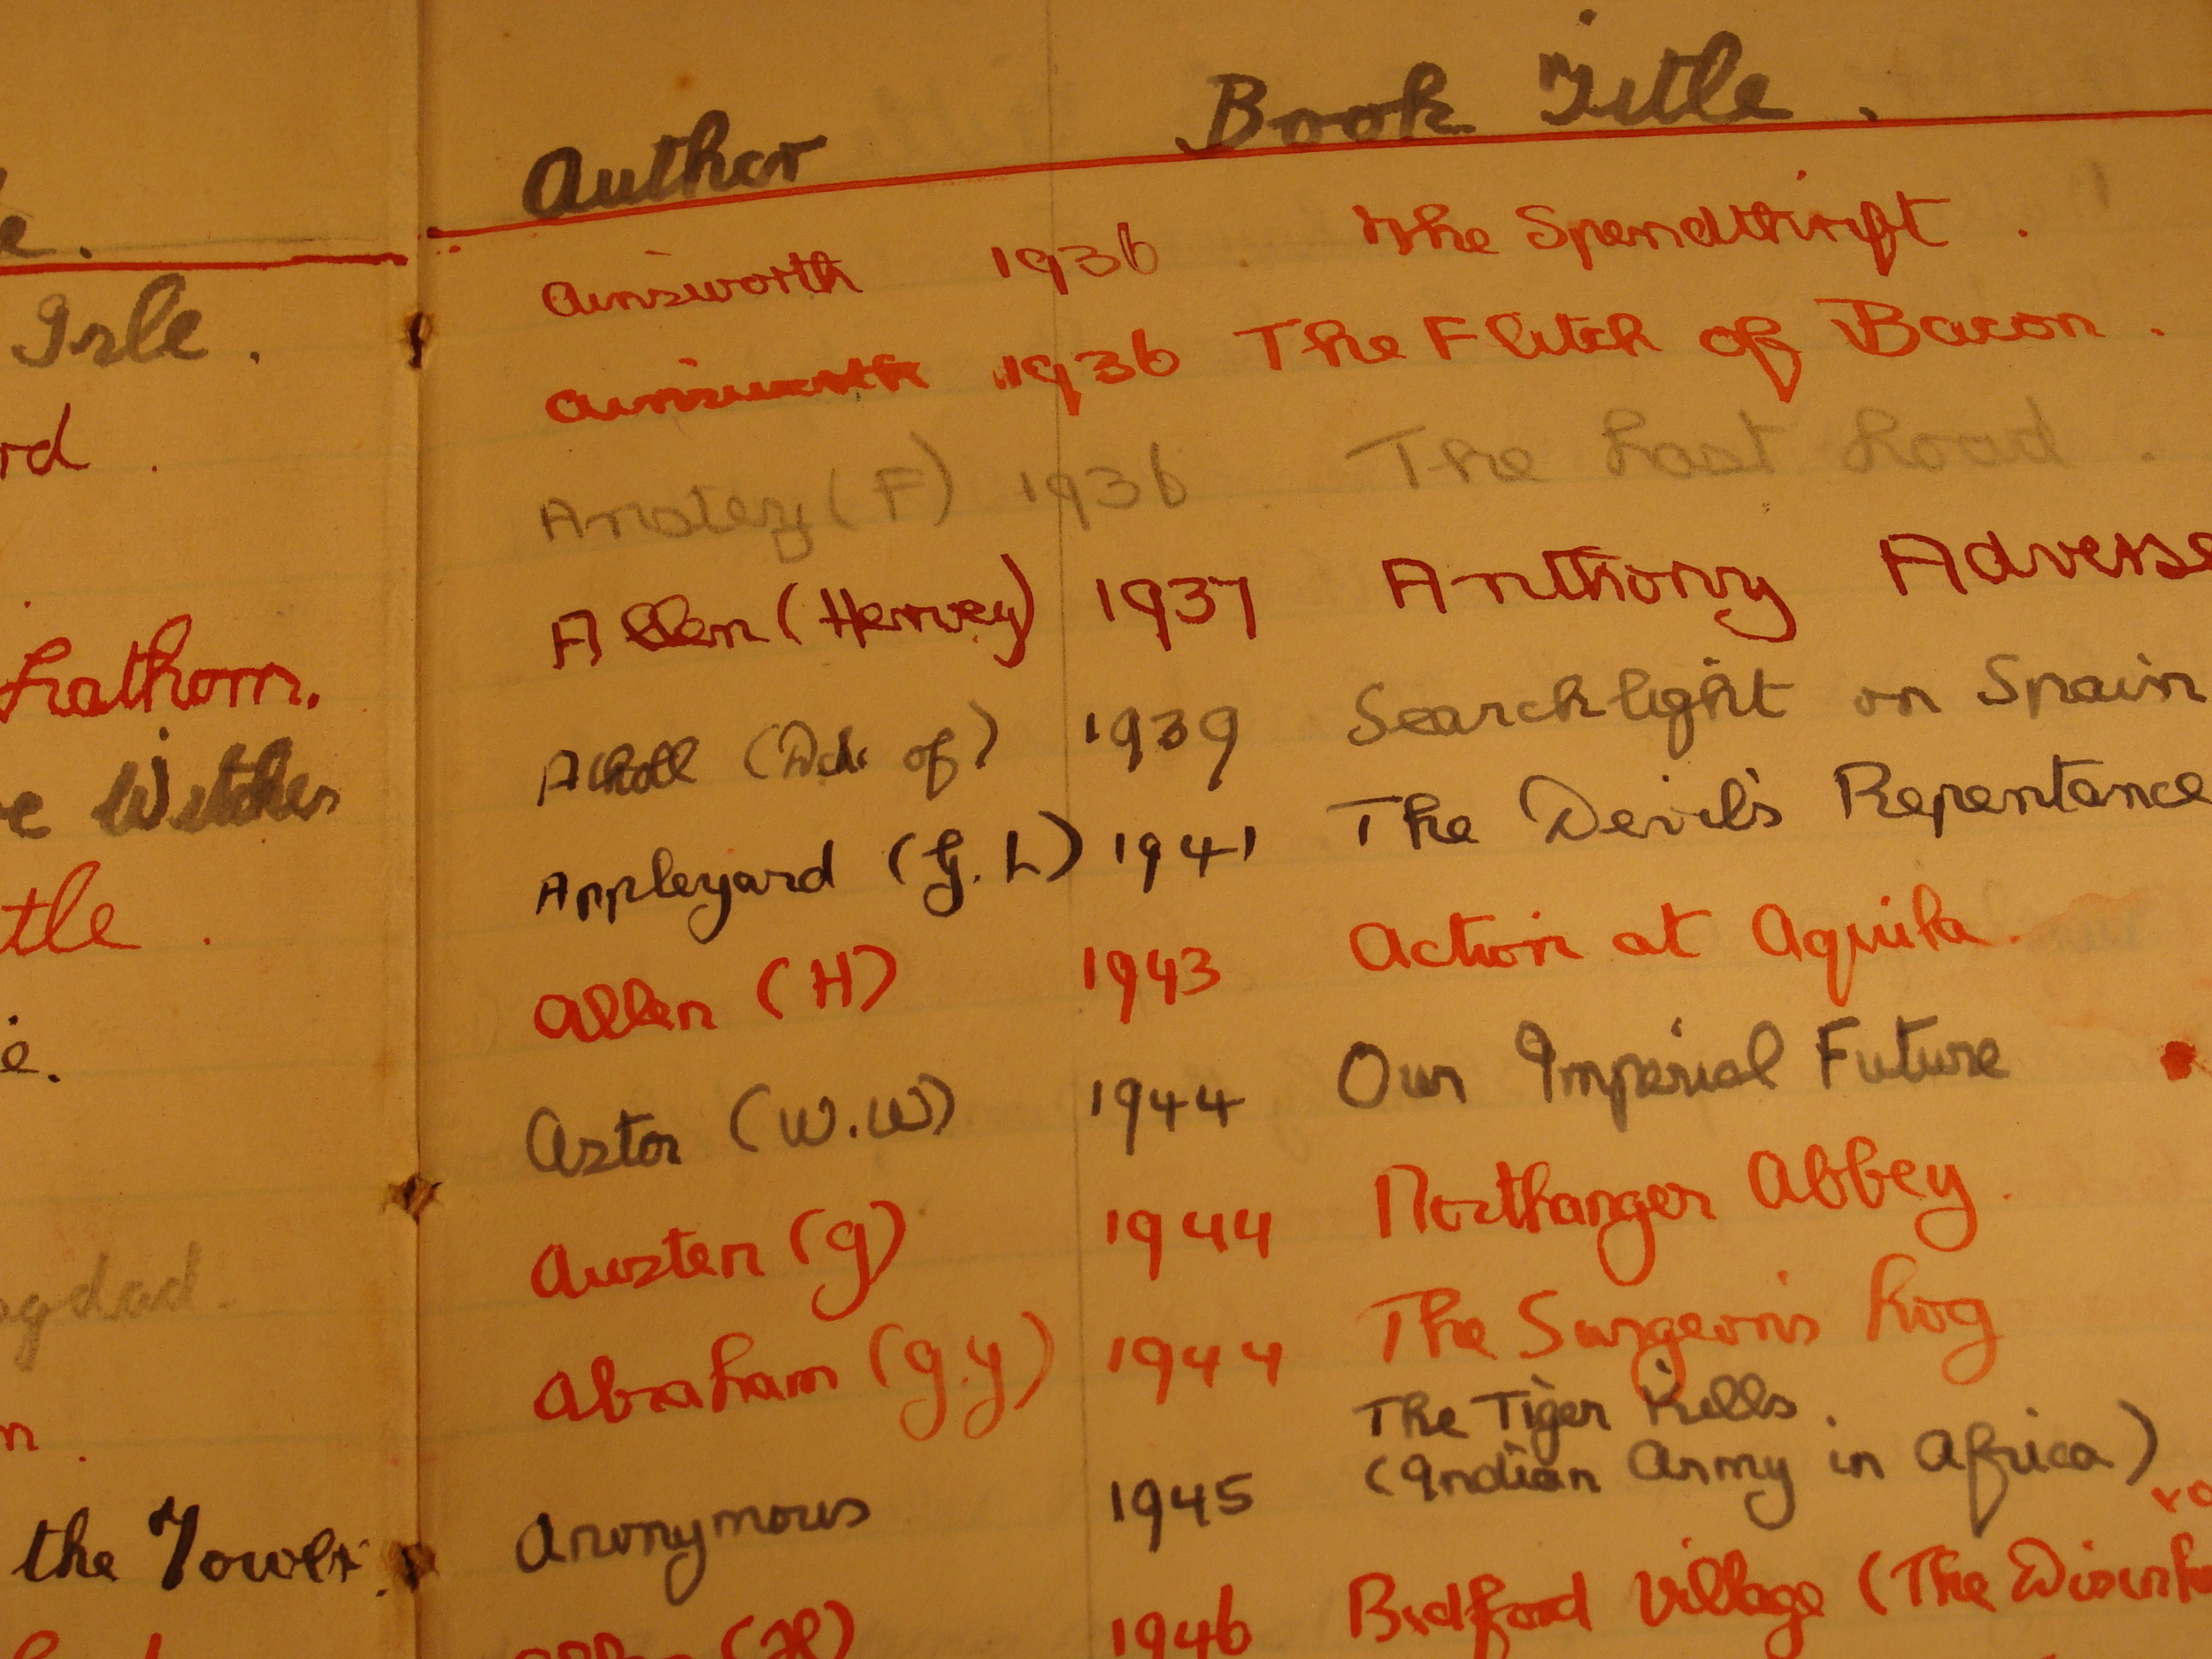 e.
Isle.
rd.
Lathom.
e Witches
tle.
e.
agdad.
n.
the Tower.
Author Book Title.
Ainsworth 1936 The Spendthrift.
Ainsworth 1936 The Flitch of Bacon.
Anstey (F) 1936 The Last Load.
Allen (Hervey) 1937 Anthony Adverse
Atholl (Dch. of) 1939 Searchlight on Spain
Appleyard (G. L) 1941 The Devil's Repentance
Allen (H) 1943 Action at Aquila.
Astor (W.W) 1944 Our Imperial Future
Austen (J) 1944 Northanger Abbey.
Abraham (J.J) 1944 The Surgeon's Log
Anonymous 1945 The Tiger Kills.
(Indian Army in Africa)
Allen (H) 1946 Bedford Village (The